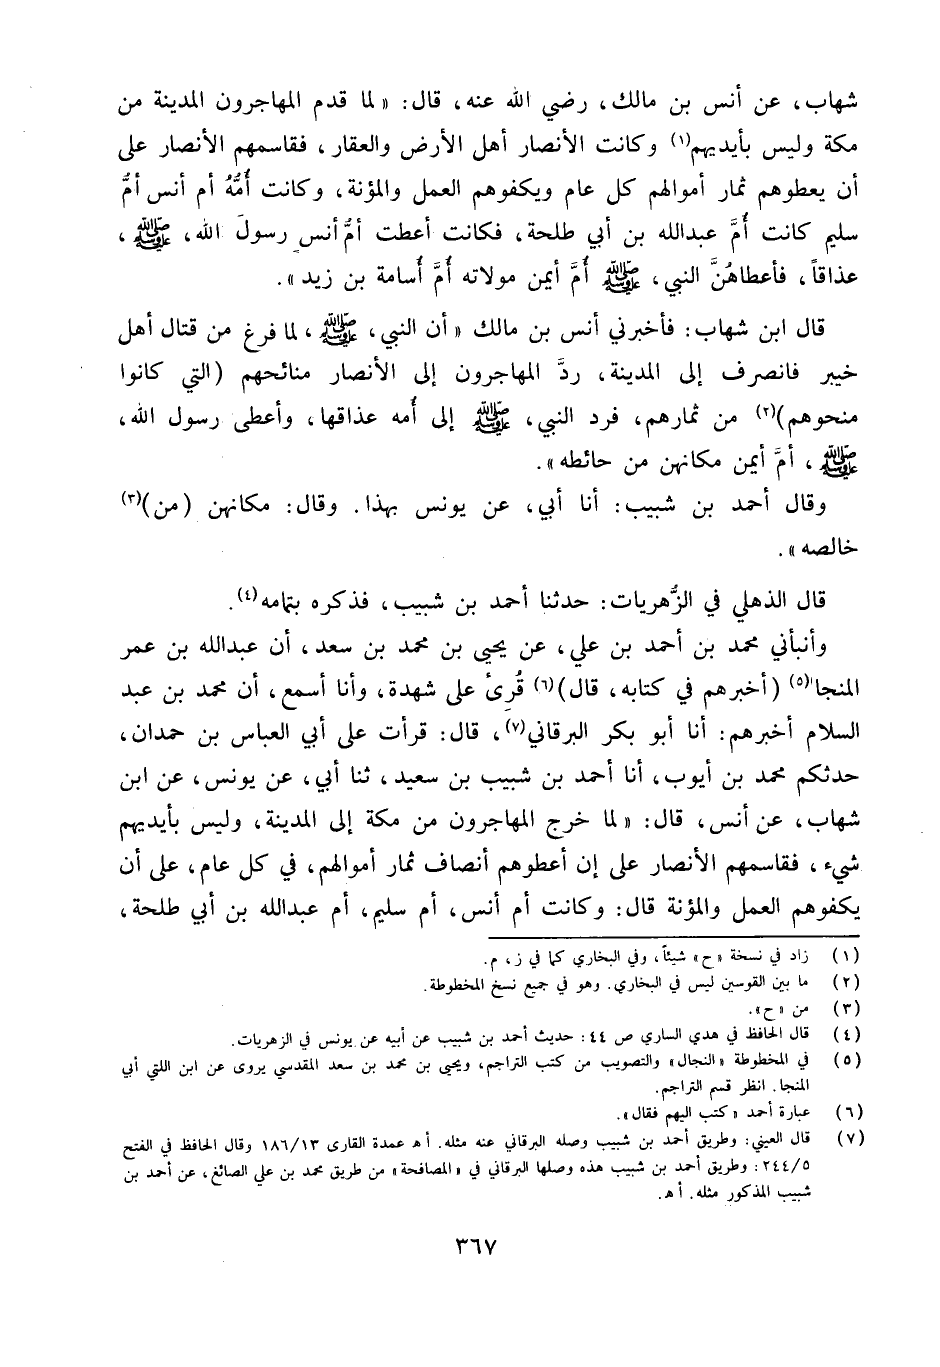 شهاب، عن أنس بن مالك، رضي الله عنه، قال: «لما قدم المهاجرون المدينة من
مكة وليس بأيديهم(١) وكانت الأنصار أهل الأرض والعقار، فقاسمهم الأنصار على
أن يعطوهم ثمار أموالهم كل عام ويكفوهم العمل والمؤنة، وكانت أُمُّهُ أم أنس أمُّ
سليم كانت أُمَّ عبدالله بن أبي طلحة، فكانت أعطت أمُّ أنسٍ رسولَ الله، ﷺ،
عذاقاً، فأعطاهُنَّ النبي، ﷺ أُمَّ أيمن مولاته أُمَّ أُسامة بن زيد».
قال ابن شهاب: فأخبرني أنس بن مالك «أن النبي، ﷺ، لما فرغ من قتال أهل
خيبر فانصرف إلى المدينة، ردَّ المهاجرون إلى الأنصار منائحهم (التي كانوا
منحوهم)(٢) من ثمارهم، فرد النبي، ﷺ إلى أُمه عذاقها، وأعطى رسول الله،
ﷺ، أمَّ أيمن مكانهن من حائطه».
وقال أحمد بن شبيب: أنا أبي، عن يونس بهذا. وقال: مكانهن (من)(٣)
خالصه».
قال الذهلي في الزُّهريات: حدثنا أحمد بن شبيب، فذكره بتمامه(٤).
وأنبأني محمد بن أحمد بن علي، عن يحيى بن محمد بن سعد، أن عبدالله بن عمر
المنجا(٥) (أخبرهم في كتابه، قال)(٦) قُرِئَ على شهدة، وأنا أسمع، أن محمد بن عبد
السلام أخبرهم: أنا أبو بكر البرقاني(٧)، قال: قرأت على أبي العباس بن حمدان،
حدثكم محمد بن أيوب، أنا أحمد بن شبيب بن سعيد، ثنا أبي، عن يونس، عن ابن
شهاب، عن أنس، قال: «لما خرج المهاجرون من مكة إلى المدينة، وليس بأيديهم
شيء، فقاسمهم الأنصار على إن أعطوهم أنصاف ثمار أموالهم، في كل عام، على أن
يكفوهم العمل والمؤنة قال: وكانت أم أنس، أم سليم، أم عبدالله بن أبي طلحة،
(١) زاد في نسخة «ح» شيئاً، وفي البخاري كما في ز، م.
(٢) ما بين القوسين ليس في البخاري. وهو في جميع نسخ المخطوطة.
(٣) من «ح».
(٤) قال الحافظ في هدي الساري ص ٤٤: حديث أحمد بن شبيب عن أبيه عن يونس في الزهريات.
(٥) في المخطوطة «النجال» والتصويب من كتب التراجم، ويحيى بن محمد بن سعد المقدسي يروى عن ابن اللتي أبي
المنجا. انظر قسم التراجم.
(٦) عبارة أحمد «كتب اليهم فقال».
(٧) قال العيني: وطريق أحمد بن شبيب وصله البرقاني عنه مثله. أ هـ عمدة القارى ١٨٦/١٣ وقال الحافظ في الفتح
٢٤٤/٥: وطريق أحمد بن شبيب هذه وصلها البرقاني في «المصافحة» من طريق محمد بن علي الصائغ، عن أحمد بن
شبيب المذكور مثله. أ هـ.
٣٦٧